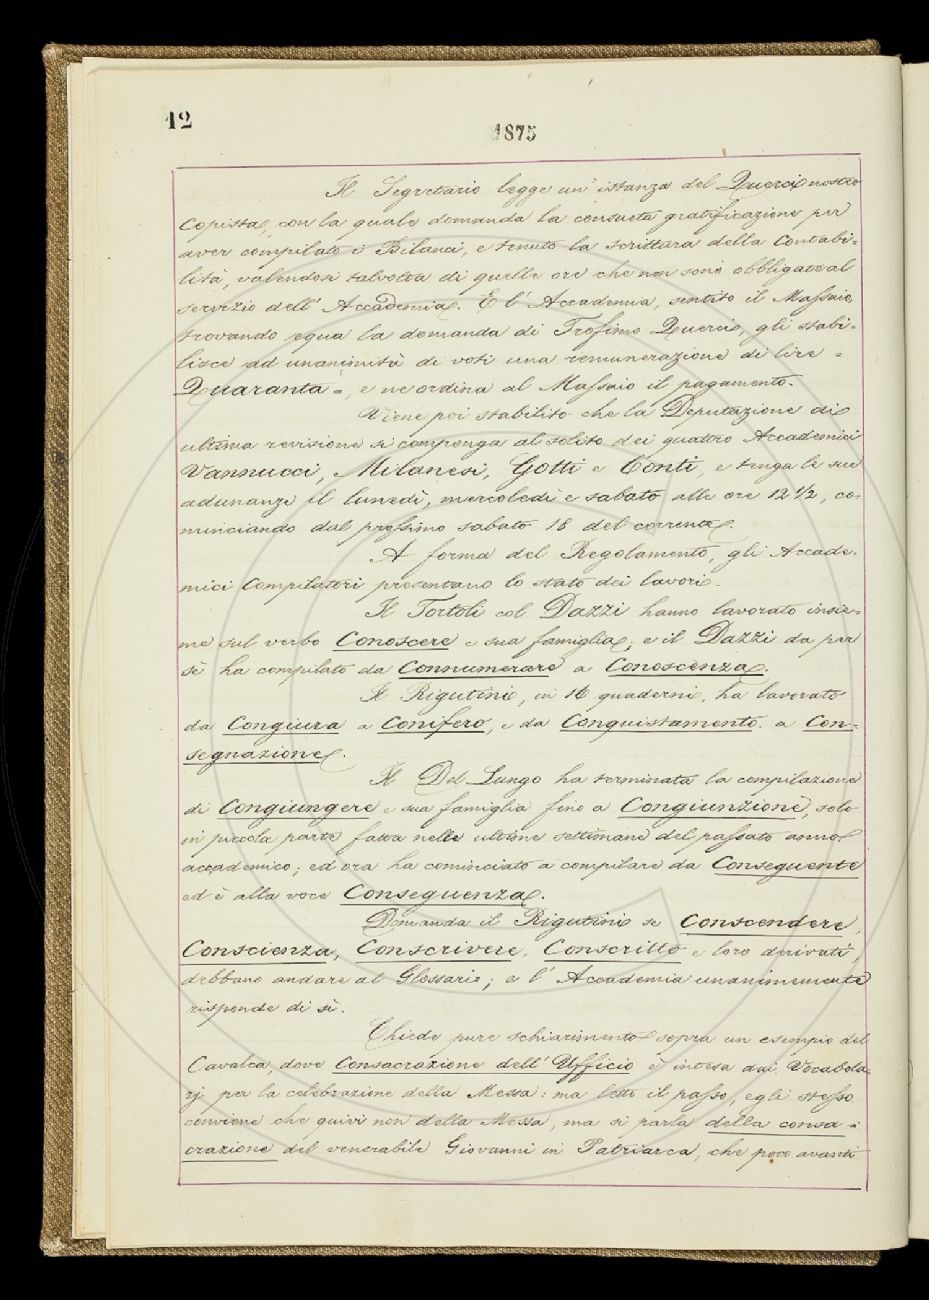 12
1875
Il Segretario legge un' istanza del Querci nostro
Copista, con la quale domanda la consueta gratificazione per
aver compilato i Bilanci, e tenuto la scrittura della Contabi=
lità, valendosi talvolta di quelle ore che non sono obbligate al
servizio dell' Accademia. E l' Accademia, sentito il Massaio,
trovando equa la domanda di Trofimo Querci, gli stabi=
lisce ad unanimità di voti una remunerazione di lire =
Quaranta =, e ne ordina al Massaio il pagamento.
Viene poi stabilito che la Deputazione di
ultima revisione si componga al solito dei quattro Accademici
Vannucci, Milanesi, Gotti e Conti, e tenga le sue
adunanze il lunedì, mercoledì e sabato, alle ore 12 1/2, co=
minciando dal prossimo sabato 18 del corrente.
A forma del Regolamento, gli Accade=
mici Compilatori presentano lo stato dei lavori.
Il Tortoli col Dazzi hanno lavorato insie=
me sul verbo Conoscere e sua famiglia; e il Dazzi da per
sè ha compilato da Connumerare a Conoscenza.
Il Rigutini, in 16 quaderni, ha lavorato
da Congiura a Conifero, e da Conquistamento a Con=
segnazione.
Il Del Lungo ha terminata la compilazione
di Congiungere e sua famiglia fino a Congiunzione, solo
in piccola parte fatta nelle ultime settimane del passato anno
accademico; ed ora ha cominciato a compilare da Conseguente
ed è alla voce Conseguenza.
Domanda il Rigutini se Conscendere,
Conscienza, Conscrivere, Conscritto e loro derivati,
debbano andare al Glossario; e l' Accademia unanimemente
risponde di sì.
Chiede pure schiarimento sopra un esempio del
Cavalca, dove Consacrazione dell' Ufficio è intesa dai Vocabola=
rj per la celebrazione della Messa: ma letto il passo, egli stesso
conviene che quivi non della Messa, ma si parla della consa=
crazione del venerabile Giovanni in Patriarca, che poco avanti